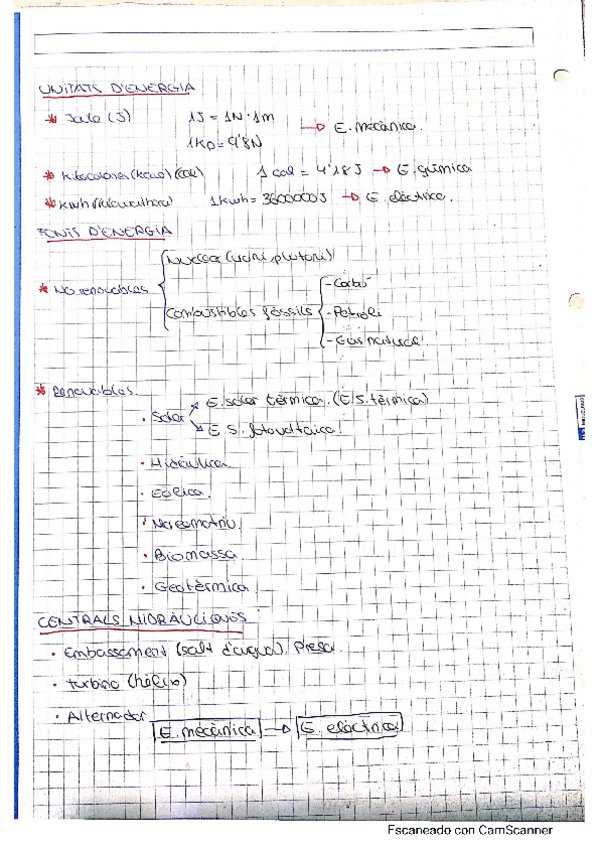 UNITATS D'ENERGIA
* Julo (J) 1J = 1N · 1m
1Kp = 9'8N → E. mecànica.
* Kilocalories (kcal) (cal) 1 cal = 4'18 J → E. química
* Kwh (kilowathora) 1kwh = 3600000J → E. elèctrica.
FONTS D'ENERGIA
Nuclear (urani, plutoni)
* No renovables
Combustibles fòssils
- Carbó
- Petroli
- Gas natural
* Renovables.
· Solar
E. solar tèrmica. (E.S. tèrmica)
E. S. fotovoltaica.
· Hidràulica
· Eòlica.
· Mareomotriu.
· Biomassa.
· Geotèrmica
CENTRALS HIDRÀULIQUES
· Embassament (salt d'aigua). Presa
· turbina (hèlix)
· Alternador
E. mecànica → E. elèctrica
Escaneado con CamScanner